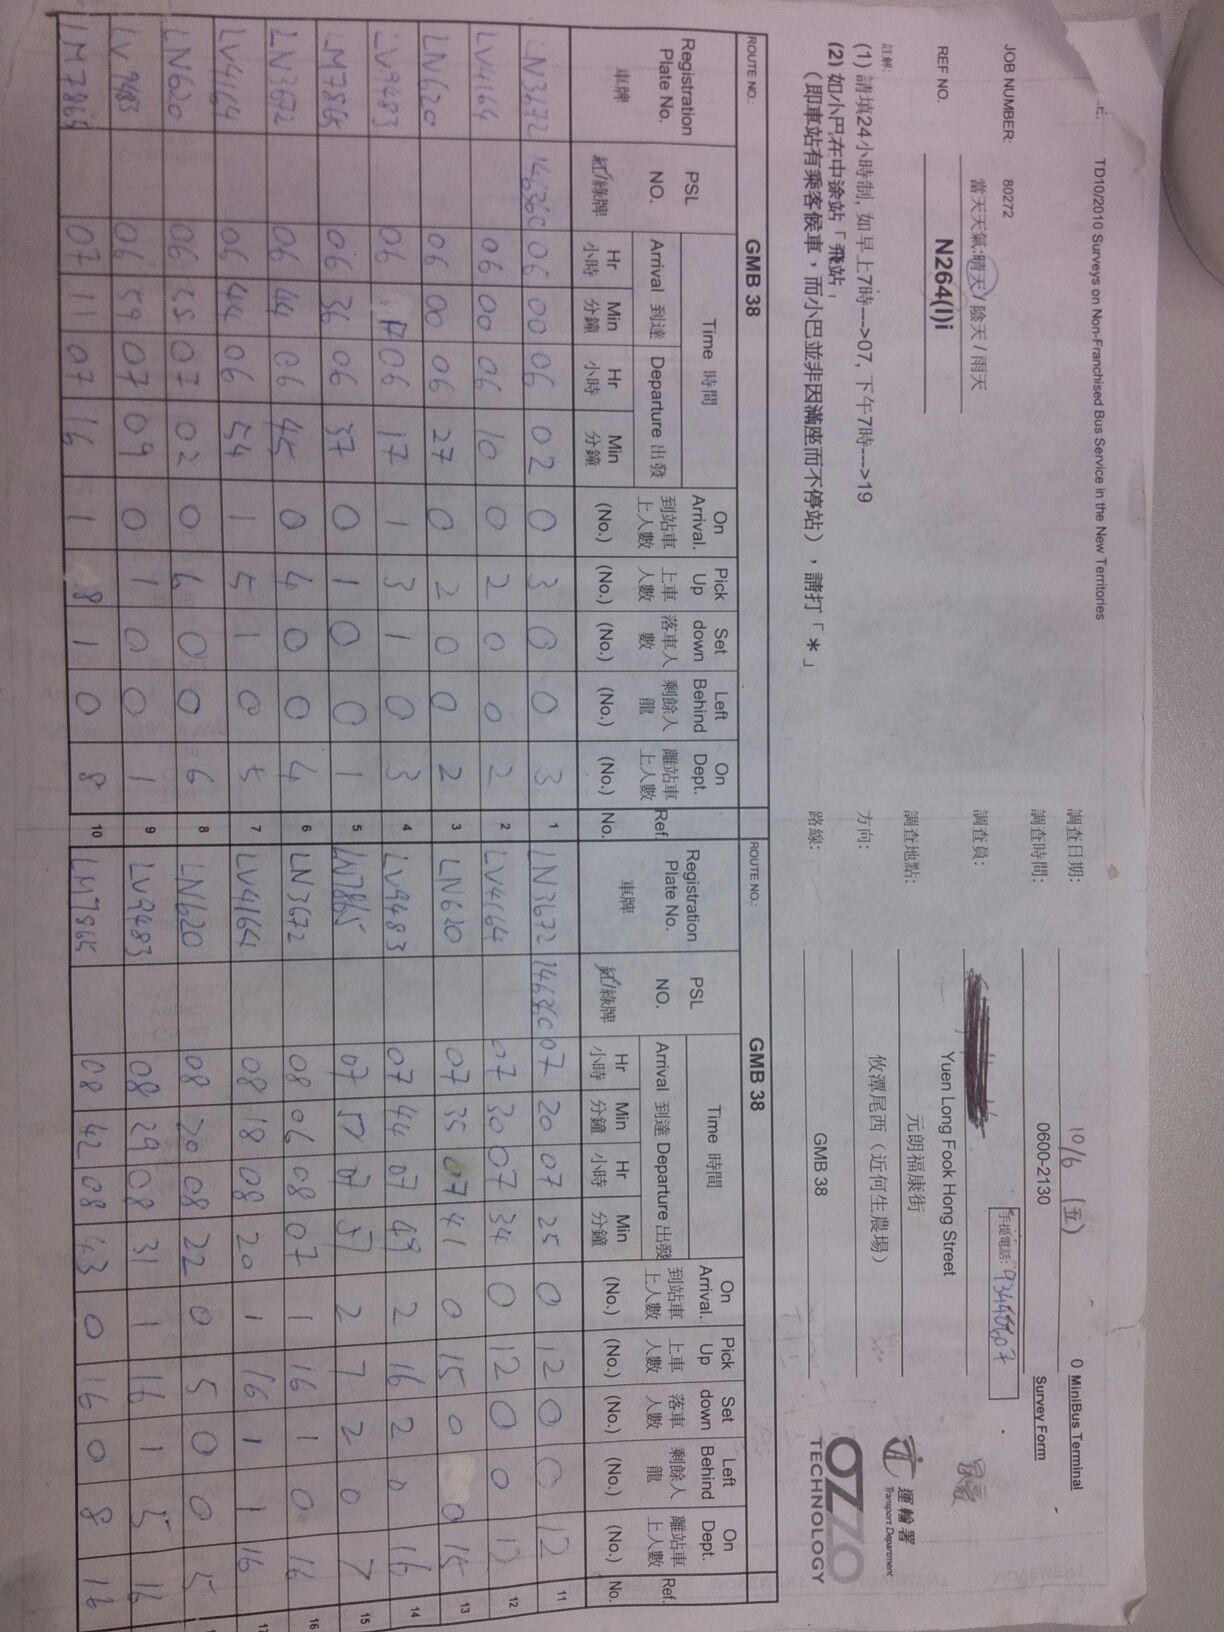 TD10/2010 Surveys on Non-Franchised Bus Service in the New Territories
0 MiniBus Terminal
Survey Form
調查日期: 10/6 (五)
調查時間: 0600-2130
手提電話:
調查員:
JOB NUMBER: 80272
當天天氣:晴天 / 陰天 / 雨天
REF NO. N264(I)i
調查地點: Yuen Long Fook Hong Street
元朗福康街
方向: 攸潭尾西（近何生農場）
路線: GMB 38
運輸署
Transport Department
OZZO
TECHNOLOGY
註解:
(1) 請填24小時制, 如早上7時--->07, 下午7時--->19
(2) 如小巴在中途站「飛站」
（即車站有乘客候車，而小巴並非因滿座而不停站），請打「*」
ROUTE NO.: GMB 38
Registration Plate No. 車牌 PSL NO. 紅/綠牌 Time 時間 Arrival 到達 Departure 出發 Hr 小時 Min 分鐘 Hr 小時 Min 分鐘 On Arrival. 到站車上人數 (No.) Pick Up 上車人數 (No.) Set down 落車人數 (No.) Left Behind 剩餘人龍 (No.) On Dept. 離站車上人數 (No.) Ref No.
LN3672 14636C 06 00 06 02 0 3 0 0 3 1
LV4164 06 00 06 10 0 2 0 0 2 2
LN620 06 00 06 27 0 2 0 0 2 3
LV9483 06 17 06 17 1 3 1 0 3 4
LM7865 06 36 06 37 0 1 0 0 1 5
LN3672 06 44 06 45 0 4 0 0 4 6
LV4164 06 44 06 54 1 5 1 0 5 7
LN620 06 55 07 02 0 6 0 0 6 8
LV9483 06 59 07 09 0 1 0 0 1 9
LM7865 07 11 07 16 1 8 1 0 8 10
ROUTE NO.: GMB 38
Registration Plate No. 車牌 PSL NO. 紅/綠牌 Time 時間 Arrival 到達 Departure 出發 Hr 小時 Min 分鐘 Hr 小時 Min 分鐘 On Arrival. 到站車上人數 (No.) Pick Up 上車人數 (No.) Set down 落車人數 (No.) Left Behind 剩餘人龍 (No.) On Dept. 離站車上人數 (No.) Ref. No.
LN3672 14636C 07 20 07 25 0 12 0 0 12 11
LV4164 07 30 07 34 0 12 0 0 12 12
LN620 07 35 07 41 0 15 0 0 15 13
LV9483 07 44 07 49 2 16 2 0 16 14
LM7865 07 57 07 57 2 7 2 0 7 15
LN3672 08 06 08 07 1 16 1 0 16 16
LV4164 08 18 08 20 1 16 1 1 16
LN620 08 20 08 22 0 5 0 0 5
LV9483 08 29 08 31 1 16 1 5 16
LM7865 08 42 08 43 0 16 0 8 16